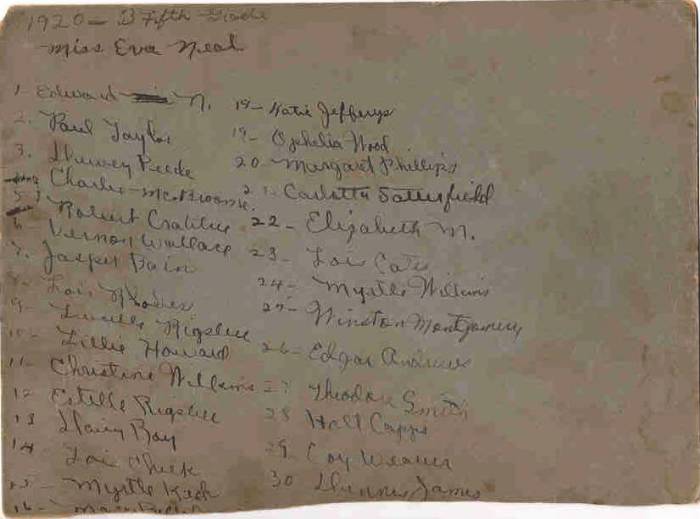 1920 - B Fifth Grade
Miss Eva Neal
1 Edward N.
2. Paul Taylor
3. Reede
Charlie McBroome
5 Robert Crabtree
6 Vernon Wallace
7. Jasper Bain
8- Lois Rhodes
9- Lucille Rigsbee
10- Lillie Howard
11- Christine Williams
12 Estelle Rigsbee
13 Bay
14 Lois Cheek
15 - Myrtle Keck
16-
19- Katie Jefferys
19- Ophelia Wood
20- Margaret Phillips
21- Carlotta Satterfield
22- Elizabeth M.
23- Lois Cates
24- Myrtle Williams
25- Winston Montgomery
26- Edgar Andrews
27 Theodore Smith
28 Hall Capps
29 Coy Weaver
30 James